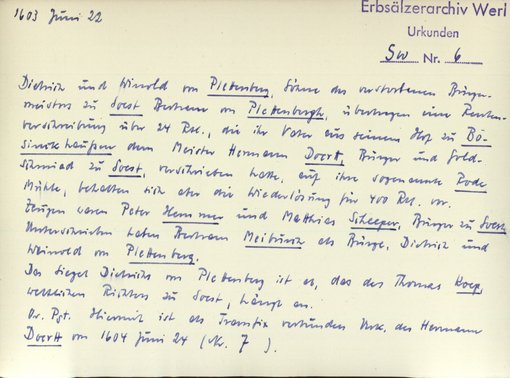 1603 Juni 22
Erbsälzerarchiv Werl
Urkunden
Sw Nr. 6
Dietrich und Winold von Plettenberg, Söhne des verstorbenen Bürger-
meisters zu Soest Bertram von Plettenbergh, übertragen eine Renten-
verschreibung über 24 Rtl., die ihr Vater aus seinem Hof zu Bö-
sinckhaußen dem Meister Hermann Doertt, Bürger und Gold-
schmied zu Soest, verschrieben hatte, auf ihre sogenannte Rode
Mühle, behalten sich aber die Wiederlösung für 400 Rtl. vor.
Zeugen waren Peter Hemmer und Matthias Scheeper, Bürger zu Soest.
Unterschrieben haben Bertram als Bürge, Dietrich und
Weinold von Plettenberg.
Das Siegel Dietrichs von Plettenberg ist ab, das des Thomas
weltlichen Richters zu Soest, hängt an.
Or. Pgt. Hiermit ist als Transfix verbunden Urk. des Hermann
Doertt vom 1604 Juni 24 (Nr. 7).